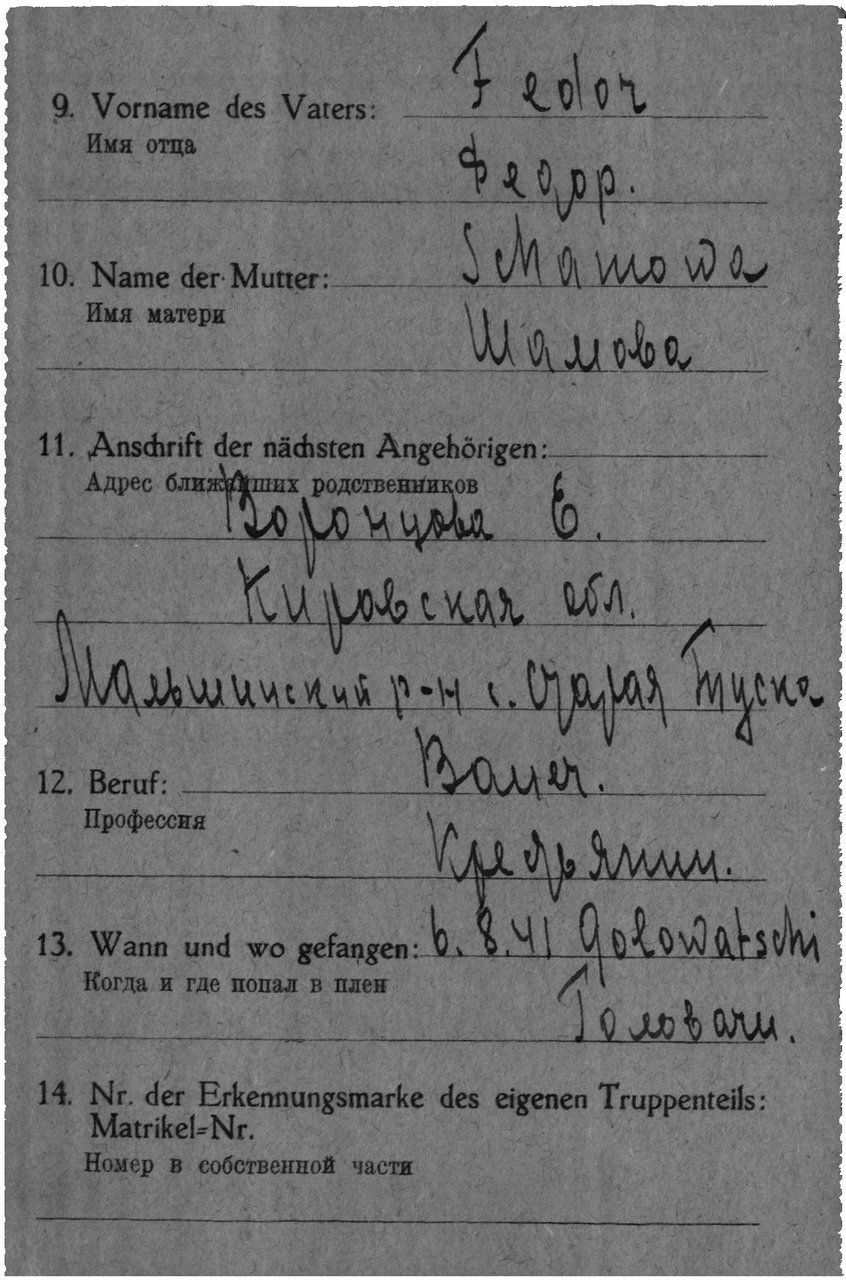 9. Vorname des Vaters: Fedor
Имя отца
Федор.
10. Name der Mutter: Schamowa
Имя матери
Шамова
11. Anschrift der nächsten Angehörigen:
Адрес ближайших родственников
Воронцова Е.
Кировская обл.
Малышинский р-н с. Старая Туска
12. Beruf: Bauer.
Профессия
Крестьянин.
13. Wann und wo gefangen: 6.8.41 Golowatschi
Когда и где попал в плен
Головачи.
14. Nr. der Erkennungsmarke des eigenen Truppenteils:
Matrikel-Nr.
Номер в собственной части